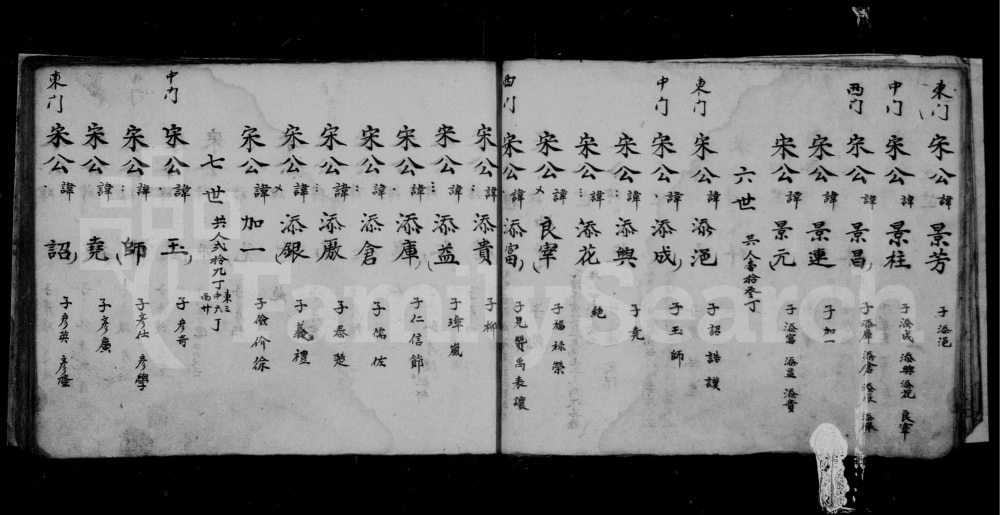 東门 宋公諱景芳 子 添浥
中门 宋公諱景柱 子 添成 添興 添花 良宰
西门 宋公諱景昌 子 添庫 添倉 添廒 添銀
宋公諱景連 子 加一
宋公諱景元 子 添富 添益 添貴
六世 共人壹拾叁丁
東门 宋公諱添浥 子 詔 誥 謨
中门 宋公諱添成 子 玉 師
宋公諱添興 子 堯
宋公諱添花 絶
宋公諱良宰 子 福 禄 榮
西门 宋公諱添富 子 見 賢 禹 表 讓
宋公諱添貴 子 柳
宋公諱添益 子 璋 嵐
宋公諱添庫 子 仁 信 節
宋公諱添倉 子 儒 佐
宋公諱添廒 子 泰 楚
宋公諱添銀 子 義 禮
宋公諱加一 子 儉 价 徐
七世 共人弍拾九丁 東三 中六丁 西廿
中门 宋公諱玉 子 彥奇
宋公諱師 子 彥仕 彥學
宋公諱堯 子 彥廣
東门 宋公諱詔 子 彥英
FamilySearch